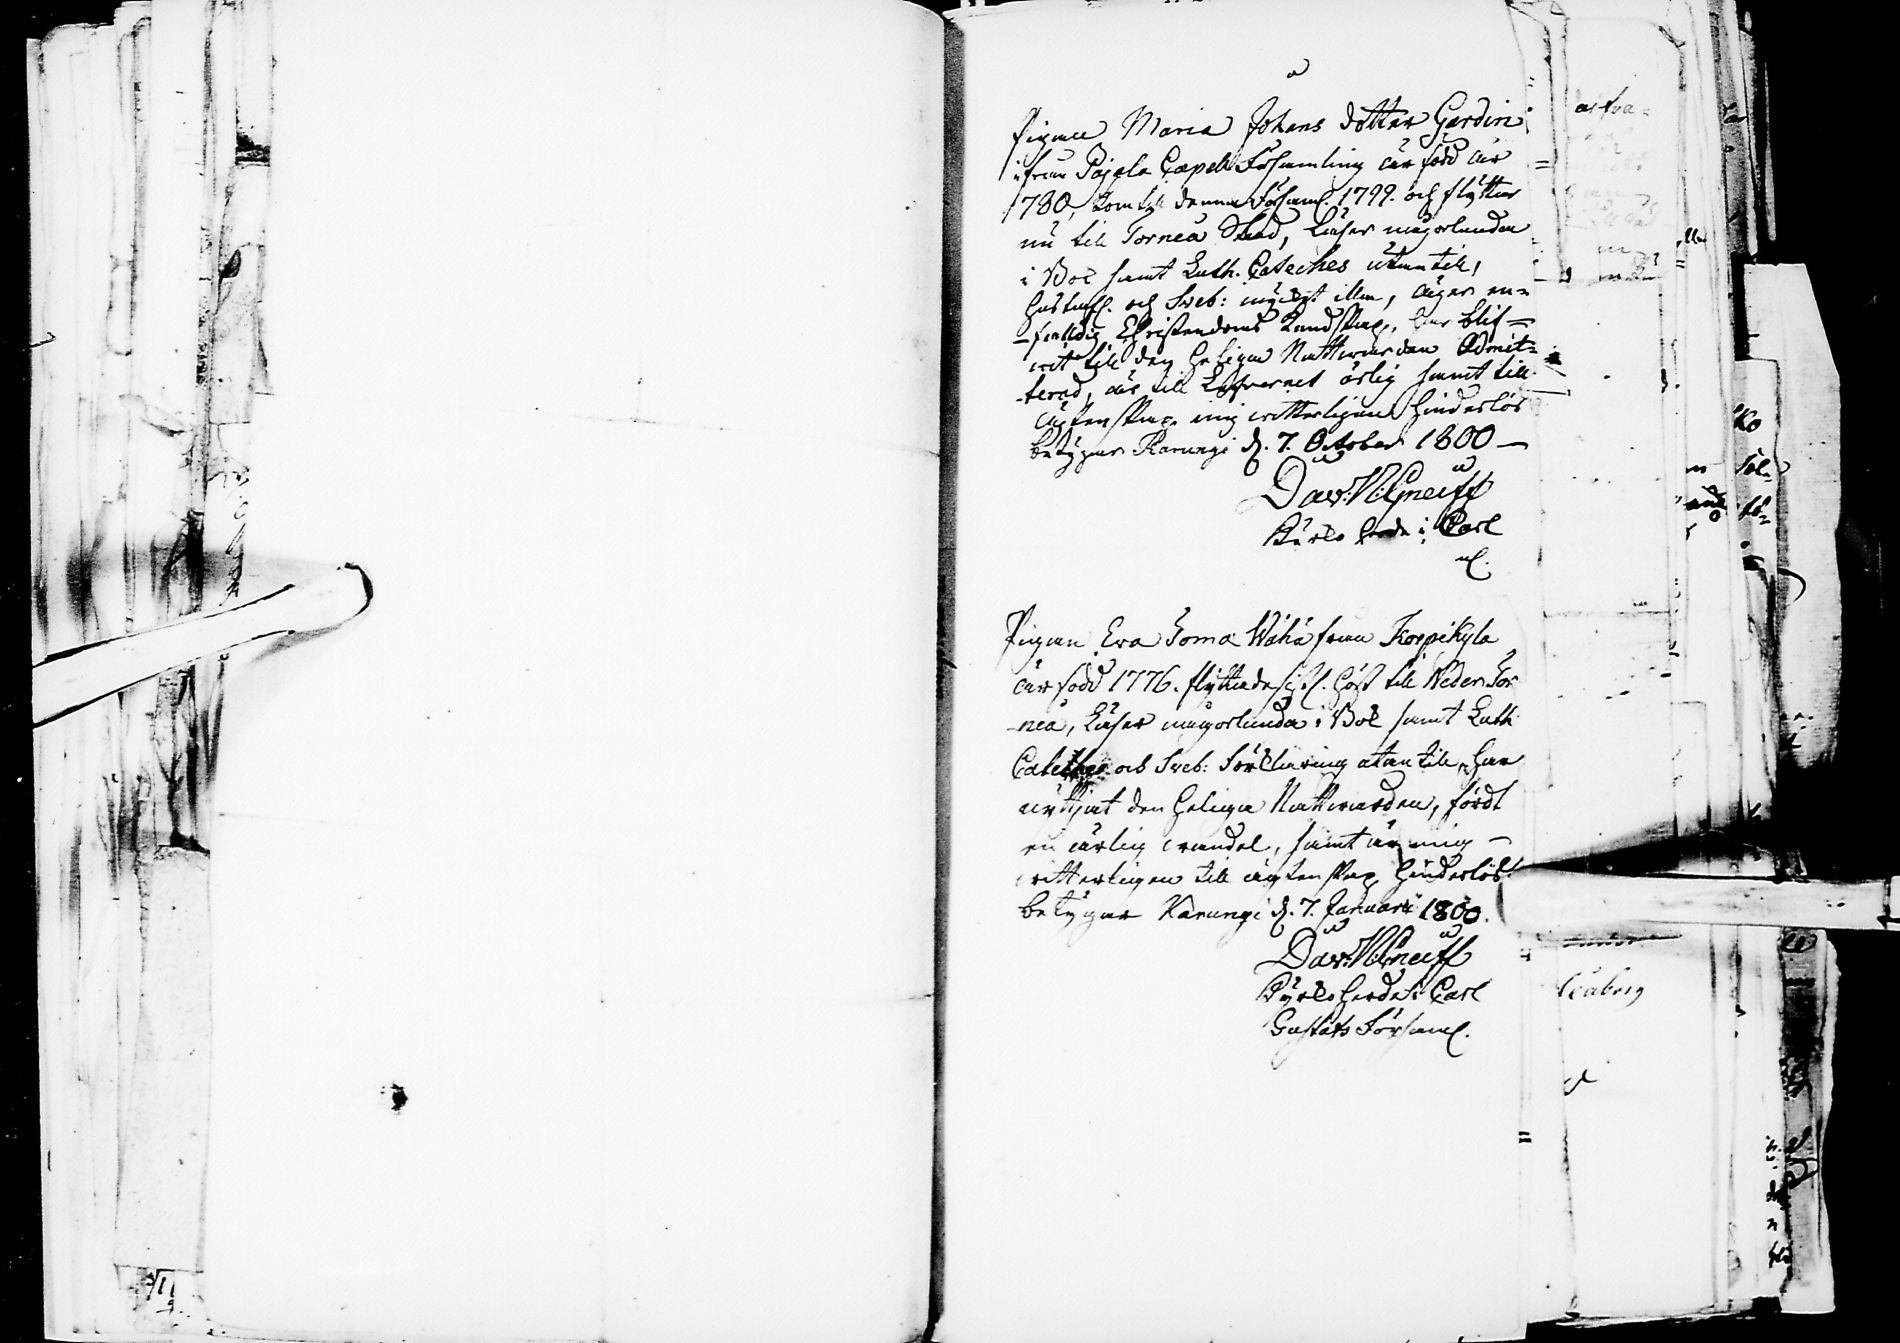 Pigan Maria Johans dotter Gardin
ifrån Pajala Capell Församling är född år
1780, kom till denna Församl. 1799. och flyttar
nu till Torneå Stad, Läser någorlunda
i Bok samt Luth. Cateches utantill,
Hustafl. och Sveb: mycket illa, äger en-
-faldig Christendoms Kundskap, har blif-
wit till den Heliga Nattwarden Admit-
-terad, är till Lefvernet ärlig samt till
Äktenskap mig witterligen hinderlös
betygar Karungi d. 7. October 1800 —
Dav: N: Gneiff
Kyrko herde i Carl

Pigan Eva Toma Wähä från Korpikylä
är född 1776. flyttade sistl. höst till Neder Tor
neå, Läser någorlunda i Bok samt Luth
Cateches och Sveb: Förklaring utantill, har
nyttjat den Heliga Nattwarden, fördt
en ärlig wandel, samt är mig —
witterligen till äktenskap hinderlös
betygar Karungi d. 7. Januarii 1800.
Dav: N: Gneiff
Kyrko herde i Carl
Gustafs Församl.